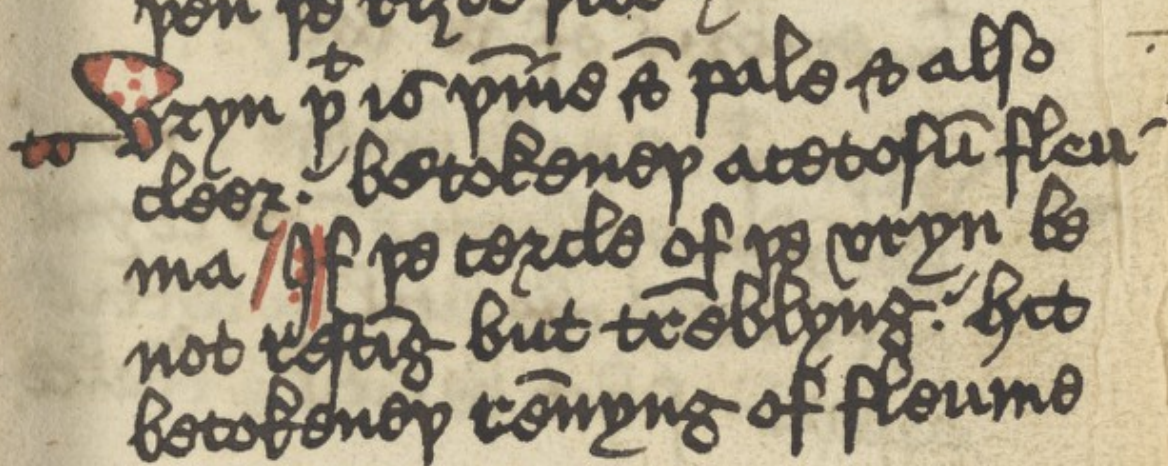 þen þe ryȝte side
Vryn þͭ is þīne & pale & also
cleer: betokeneþ acetosū fleu-
ma // If þe cercle of þe vryn be
not restīg but trēblyng: hit
betokeneþ rēnyng of fleume